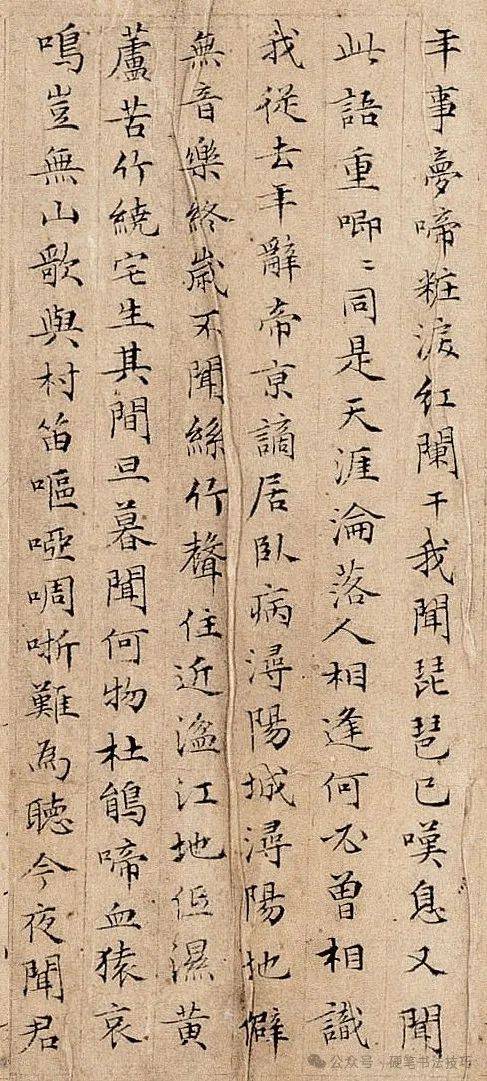 年事夢啼粧淚紅闌干我聞琵琶已嘆息又聞
此語重唧〻同是天涯淪落人相逢何必曾相識
我從去年辭帝京謫居臥病潯陽城潯陽地僻
無音樂終歲不聞絲竹聲住近湓江地低濕黃
蘆苦竹繞宅生其間旦暮聞何物杜鵑啼血猿哀
鳴豈無山歌與村笛嘔啞啁哳難為聽今夜聞君
公众号 · 硬笔书法技巧